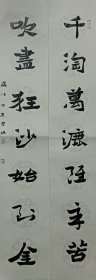 千淘萬漉雖辛苦
吹盡狂沙始到金